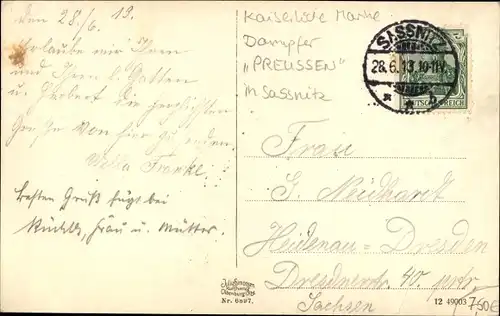 den 28./6. 13.
Erlaube mir Ihnen
und Ihren lb. Gatten
und Herbert die herzlichsten
Grüße von hier zu senden
Frankl.
besten Gruß fügt bei
Frau u. Mutter.
Kaiserliche Marine
Dampfer
„PREUSSEN“
in Sassnitz
SASSNITZ
28.6.13.10-11V.
* * b
DEUTSCHES REICH
G. Neidhardt
Heidenau=Dresden
Dresdnerstr. 40. ptr.
Sachsen
Nr. 6597.
12 49003
7,50€